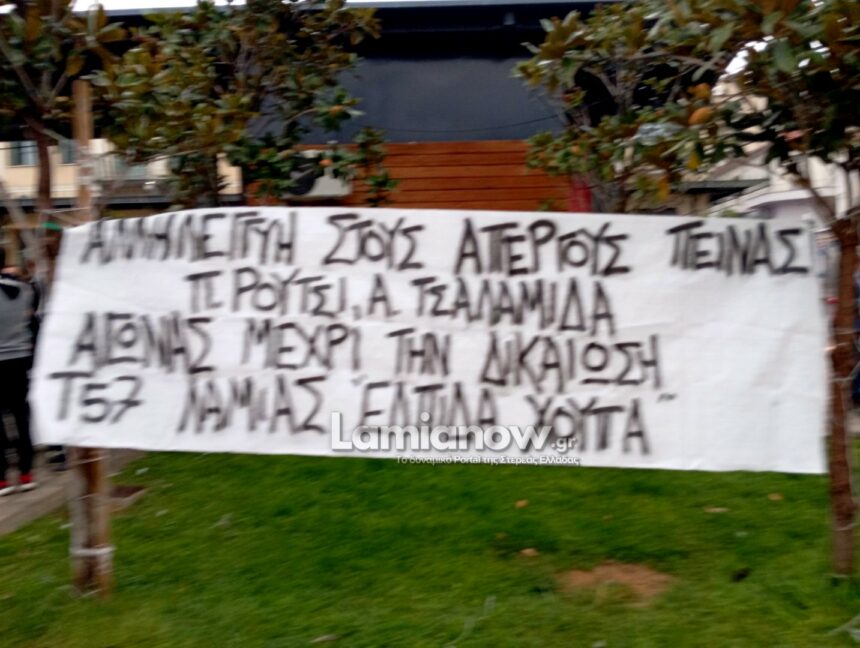 ΑΛΛΗΛΕΓΓΥΗ ΣΤΟΥΣ ΑΠΕΡΓΟΥΣ ΠΕΙΝΑΣ
Π. ΡΟΥΤΣΙ, Α. ΤΣΑΛΑΜΙΔΑ
ΑΓΩΝΑΣ ΜΕΧΡΙ ΤΗΝ ΔΙΚΑΙΩΣΗ
Τ57 ΛΑΜΙΑΣ "ΕΛΠΙΔΑ ΧΟΥΠΑ"
Lamianow.gr
Το δυναμικό Portal της Στερεάς Ελλάδας